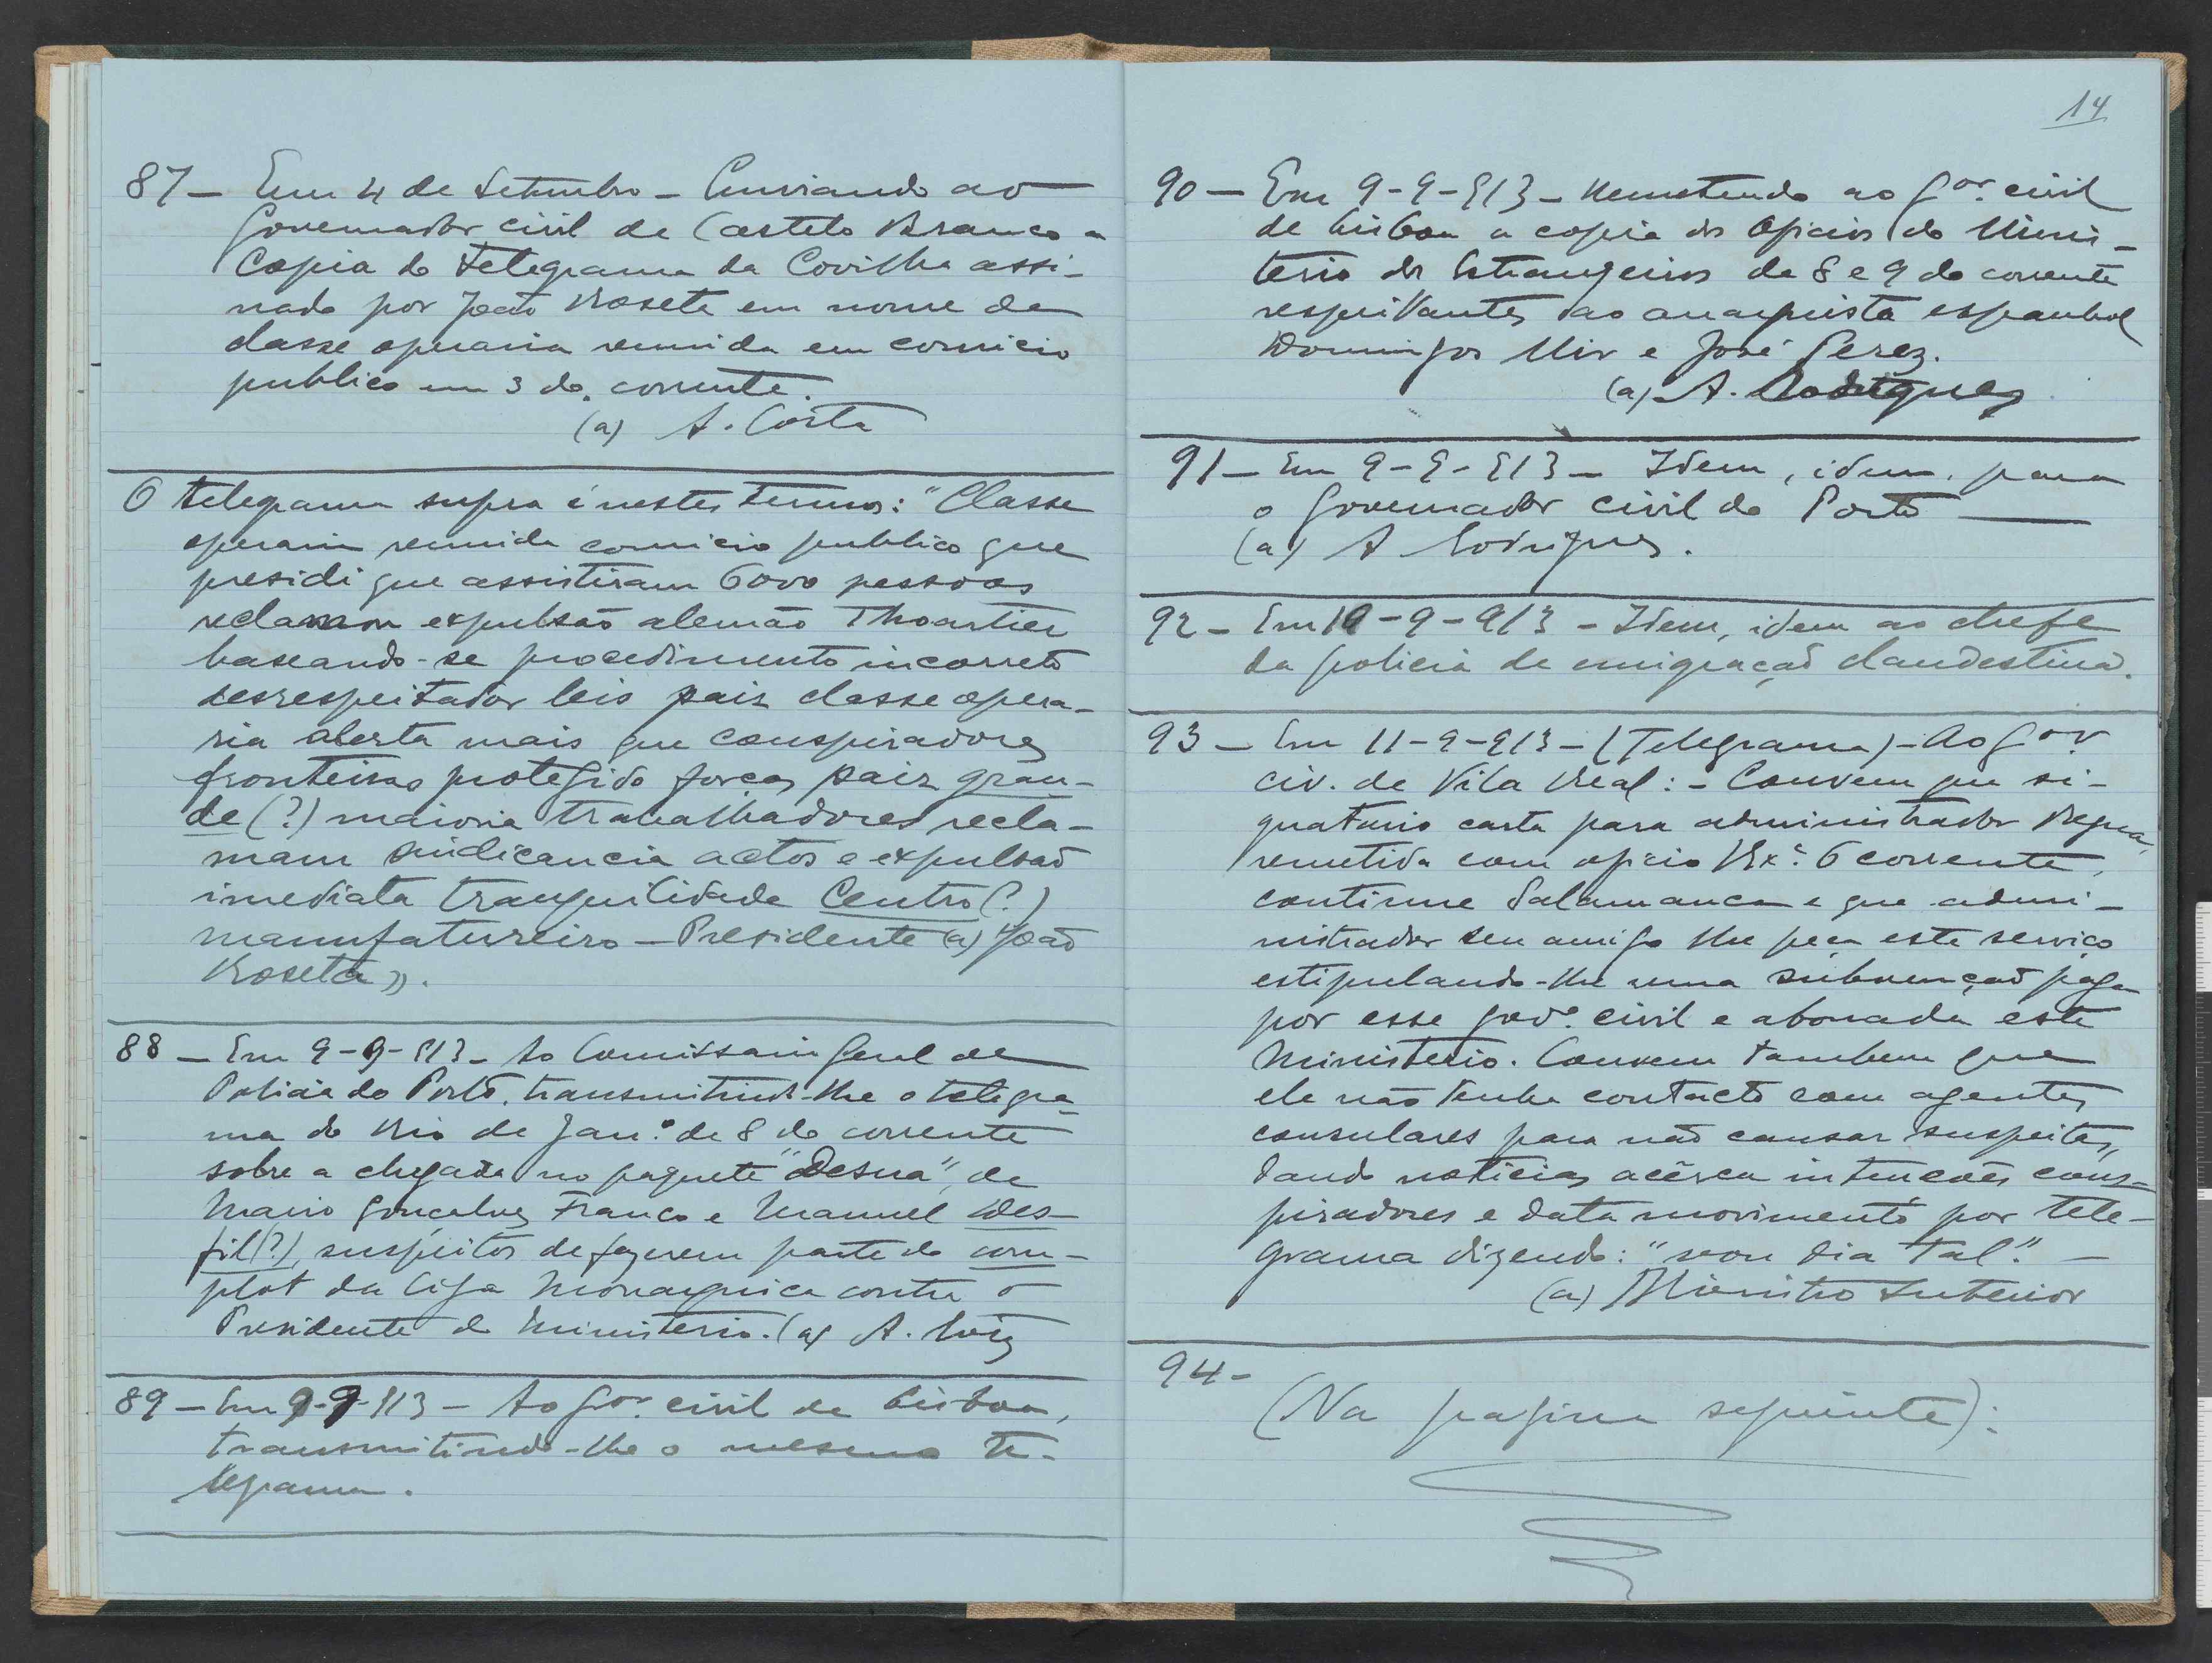 87 — Em 4 de Setembro — Enviando ao
Governador civil de Castelo Branco a
Copia do telegrama da Covilha assi-
nado por João Roseta em nome da
classe operaria reunida em comicio
publico em 3 do corrente.
(a) A. Costa
O telegrama supra é nestes termos: "Classe
operaria reunida comicio publico que
presidi que assistiram 6000 pessoas
reclamam expulsão alemão Thoartier
baseando-se procedimento incorreto
desrespeitador leis paiz classe opera-
ria alerta mais que conspiradores
fronteiras protegido forças paiz gran-
de (?) maioria trabalhadores recla-
mam sindicancia actos e expulsão
imediata tranquilidade Centro (?)
manufatureiro — Presidente (a) João
Roseta».
88 — Em 9-9-913 — Ao Comissario Geral de
Policia do Porto, transmitindo-lhe o telegra-
ma do Rio de Jan.º de 8 do corrente
sobre a chegada no paquete "Desna", de
Mario Gonçalves Franco e Manuel Des-
fil (?), suspeitos de fazerem parte do com-
plot da Liga Monarquica contra o
Presidente do Ministerio. (a) A. Luiz
89 — Em 9-9-913 — Ao Gor. civil de Lisboa,
transmitindo-lhe o mesmo te-
legrama.
14
90 — Em 9-9-913 — Remetendo ao Gor. civil
de Lisboa a copia dos oficios do Minis-
terio dos Estrangeiros de 8 e 9 do corrente
respeitantes ao anarquista espanhol
Domingos Mir e José Perez.
(a) A. Rodrigues
91 — Em 9-9-913 — Idem, idem, para
o Governador civil do Porto —
(a) A Rodrigues.
92 — Em 10-9-913 — Idem, idem ao chefe
da policia de emigração clandestina.
93 — Em 11-9-913 — (Telegrama) — Ao Gor.
civ. de Vila Real: — Convem que si-
gnatario carta para administrador Regua,
remetida com oficio V. Ex.ª 6 corrente,
continue Salamanca e que admi-
nistrador seu amigo lhe peça este serviço
estipulando-lhe uma subvenção paga
por esse govº. civil e abonada este
Ministerio. Convem tambem que
ele não tenha contacto com agentes
consulares para não causar suspeitas,
dando noticias acêrca intenções cons-
piradores e data movimento por tele-
grama dizendo: "vou dia tal". —
(a) Ministro Interior
94 —
(Na pagina seguinte):